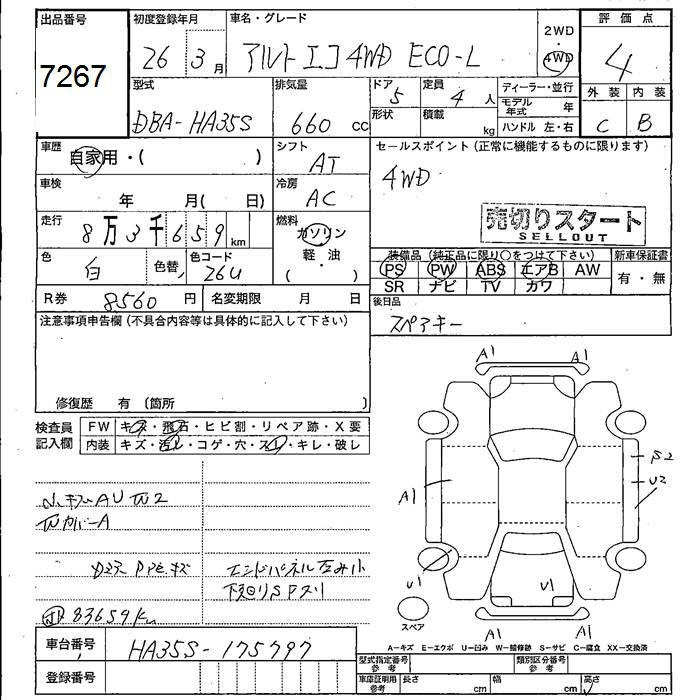 出品番号 初度登録年月 車名・グレード 2WD・4WD 評価点
7267 26 3月 アルト エコ 4WD ECO-L 4
型式 排気量 ドア 定員 ディーラー・並行 外装 内装
DBA-HA35S 660 cc 5 4 人 モデル年式 年 C B
形状 積載 kg ハンドル 左・右
車歴 自家用・( ) シフト AT セールスポイント(正常に機能するものに限ります)
車検 年 月( 日) 冷房 AC 4WD
走行 8万3千659 km 燃料 ガソリン・軽油 ( )
売切りスタート
SELLOUT
色 白 色替 色コード 26U
装備品(純正品に限り○をつけて下さい) 新車保証書
PS PW ABS エアB AW 有・無
SR ナビ TV カワ
R券 8560 円 名変期限 月 日
後日品
スペアキー
注意事項申告欄(不具合内容等は具体的に記入して下さい)
修復歴 有(箇所 )
検査員記入欄 FW キズ・飛石・ヒビ割・リペア跡・X要
内装 キズ・汚レ・コゲ・穴・スレ・キレ・破レ
A1 A1
S2
U2
A1
U1 U1
A1 A1
スペア
小キズ AU
カバーA
キズ エンドパネル
下回りS
83659km
A-キズ E-エクボ U-凹み W-補修跡 S-サビ C-腐食 XX-交換済
車台番号 HA35S-175797
型式指定番号 参考 類別区分番号 参考
登録番号
車庫証明用 参考 長さ cm 幅 cm 高さ cm